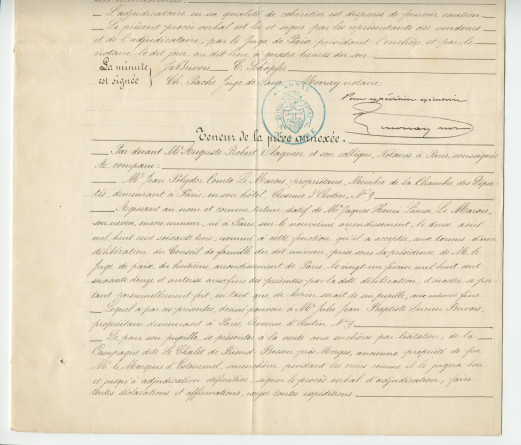 L'adjudicataire en sa qualité de cohéritier est dispensé de fournir caution.
Le présent procès verbal est lu et signé par les représentants des vendeurs
et de l'adjudicataire, par le Juge de Paix, présidant l'enchère et par le
notaire, le dit jour, au dit lieu à quatre heures du soir.
La minute est signée
Ch. Pache Juge de Paix Monay notaire
Pour expédition conforme
Teneur de la pièce annexée.
Par devant Me Auguste Robert et son collègue, Notaires à Paris, soussignés
A comparu:
Mr Jean Polydor Comte Le Marois, propriétaire, Membre de la Chambre des Dépu-
tés, demeurant à Paris, en son hôtel, Avenue d'Antin, No 9
Agissant au nom et comme tuteur datif de Mr Jaques Henri Le Marois,
son neveu, encore mineur, né à Paris sur le neuvième arrondissement, le deux août
mil huit cent soixante trois; nommé à cette fonction qu'il a acceptée, aux termes d'une
délibération du Conseil de famille du dit mineur, prise sous la présidence de Mr le
Juge de paix du huitième arrondissement de Paris, le vingt un février mil huit cent
soixante douze et autorisé aux fins des présentes par la dite délibération, d'abondant se por-
tant personnellement fort, en tant que de besoin serait de son pupille, aux mêmes fins.
Lequel a par ces présentes, donné pouvoir à Mr Jules Jean Baptiste Lucien
propriétaire demeurant à Paris, Avenue d'Antin No 9.
De, pour son pupille, se présenter à la vente aux enchères par licitation, de la
Campagne dite Le Chalet de près Morges, ancienne propriété de feu
Mr le Marquis d'Estourmel, surenchérir pendant les mises comme il le jugera bon
et jusqu'à adjudication définitive, signer le procès verbal d'adjudication, faire
toutes déclarations et affirmations, exiger toutes expéditions